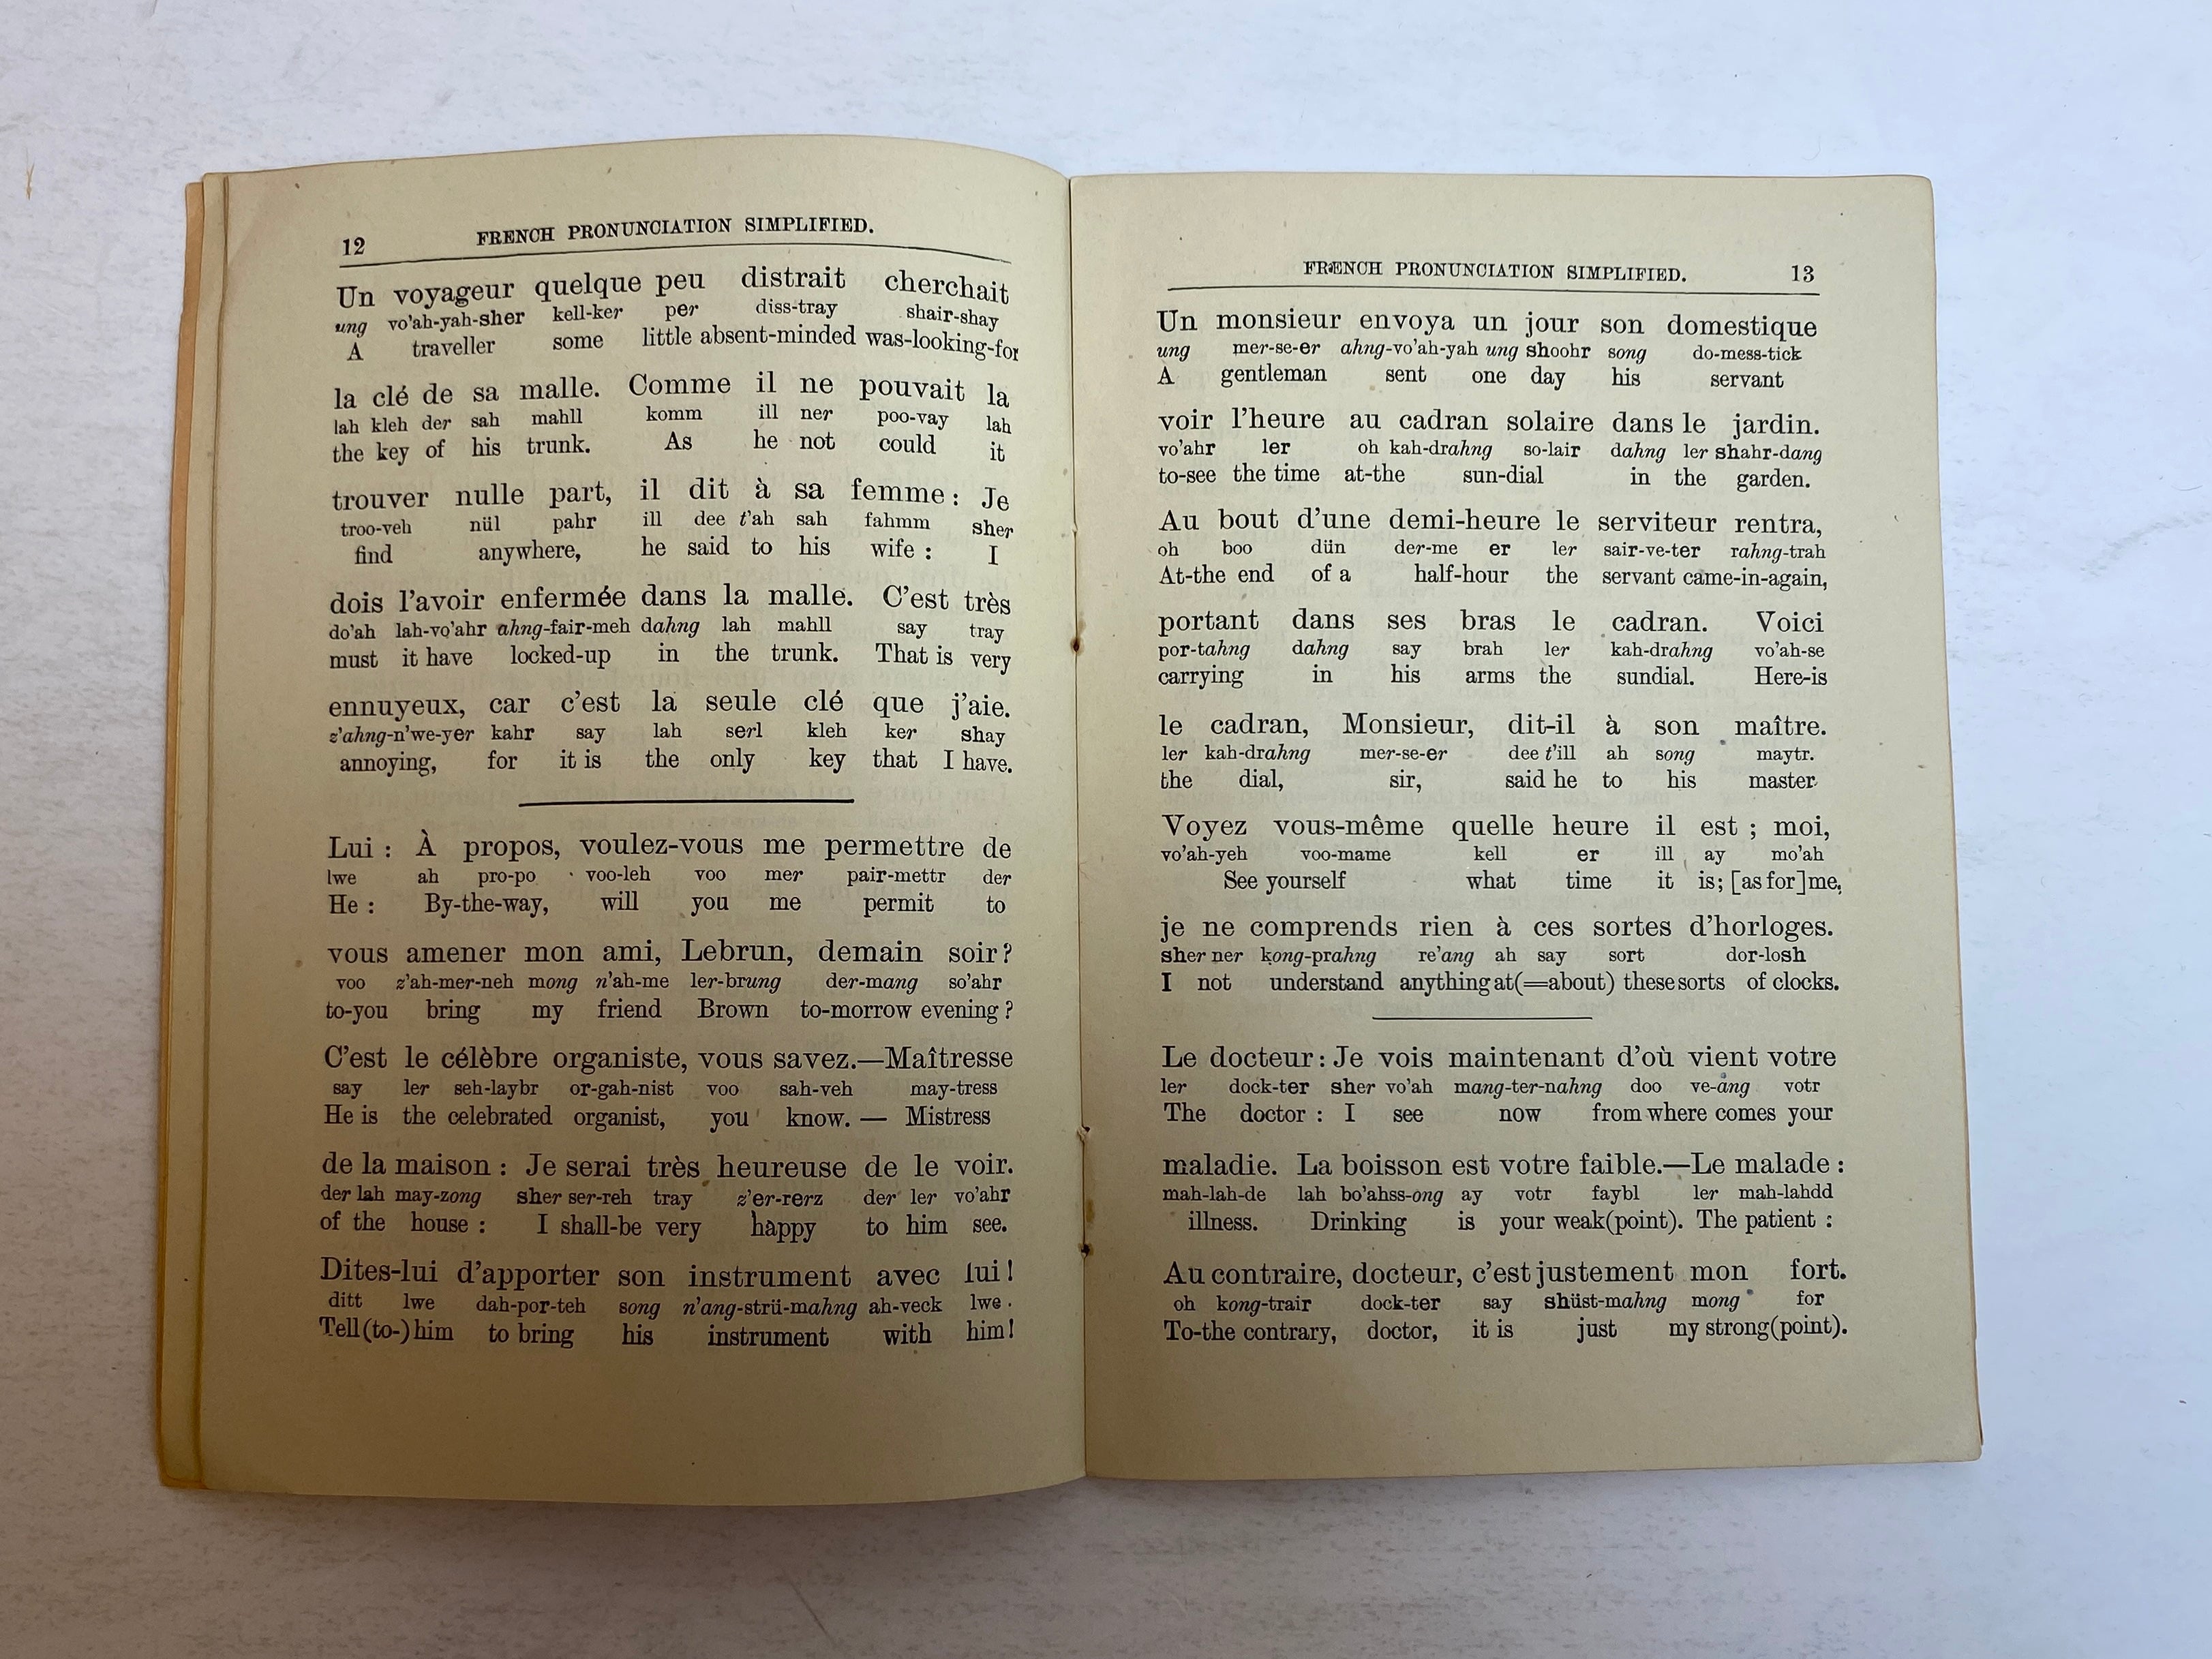 12 FRENCH PRONUNCIATION SIMPLIFIED.
Un voyageur quelque peu distrait cherchait
ung vo'ah-yah-sher kell-ker per diss-tray shair-shay
A traveller some little absent-minded was-looking-for
la clé de sa malle. Comme il ne pouvait la
lah kleh der sah mahll komm ill ner poo-vay lah
the key of his trunk. As he not could it
trouver nulle part, il dit à sa femme: Je
troo-veh nül pahr ill dee t'ah sah fahmm sher
find anywhere, he said to his wife: I
dois l'avoir enfermée dans la malle. C'est très
do'ah lah-vo'ahr ahng-fair-meh dahng lah mahll say tray
must it have locked-up in the trunk. That is very
ennuyeux, car c'est la seule clé que j'aie.
z'ahng-n'we-yer kahr say lah serl kleh ker shay
annoying, for it is the only key that I have.
Lui: À propos, voulez-vous me permettre de
lwe ah pro-po voo-leh voo mer pair-mettr der
He: By-the-way, will you me permit to
vous amener mon ami, Lebrun, demain soir?
voo z'ah-mer-neh mong n'ah-me ler-brung der-mang so'ahr
to-you bring my friend Brown to-morrow evening?
C'est le célèbre organiste, vous savez.—Maîtresse
say ler seh-laybr or-gah-nist voo sah-veh may-tress
He is the celebrated organist, you know. — Mistress
de la maison: Je serai très heureuse de le voir.
der lah may-zong sher ser-reh tray z'er-rerz der ler vo'ahr
of the house: I shall-be very happy to him see.
Dites-lui d'apporter son instrument avec lui!
ditt lwe dah-por-teh song n'ang-strü-mahng ah-veck lwe.
Tell(to-)him to bring his instrument with him!
FRENCH PRONUNCIATION SIMPLIFIED. 13
Un monsieur envoya un jour son domestique
ung mer-se-er ahng-vo'ah-yah ung shoohr song do-mess-tick
A gentleman sent one day his servant
voir l'heure au cadran solaire dans le jardin.
vo'ahr ler oh kah-drahng so-lair dahng ler shahr-dang
to-see the time at-the sun-dial in the garden.
Au bout d'une demi-heure le serviteur rentra,
oh boo dün der-me er ler sair-ve-ter rahng-trah
At-the end of a half-hour the servant came-in-again,
portant dans ses bras le cadran. Voici
por-tahng dahng say brah ler kah-drahng vo'ah-se
carrying in his arms the sundial. Here-is
le cadran, Monsieur, dit-il à son maître.
ler kah-drahng mer-se-er dee t'ill ah song maytr.
the dial, sir, said he to his master
Voyez vous-même quelle heure il est; moi,
vo'ah-yeh voo-mame kell er ill ay mo'ah
See yourself what time it is; [as for]me,
je ne comprends rien à ces sortes d'horloges.
sher ner kong-prahng re'ang ah say sort dor-losh
I not understand anything at(=about) these sorts of clocks.
Le docteur: Je vois maintenant d'où vient votre
ler dock-ter sher vo'ah mang-ter-nahng doo ve-ang votr
The doctor: I see now from where comes your
maladie. La boisson est votre faible.—Le malade:
mah-lah-de lah bo'ahss-ong ay votr faybl ler mah-lahdd
illness. Drinking is your weak(point). The patient:
Au contraire, docteur, c'est justement mon fort.
oh kong-trair dock-ter say shüst-mahng mong for
To-the contrary, doctor, it is just my strong(point).